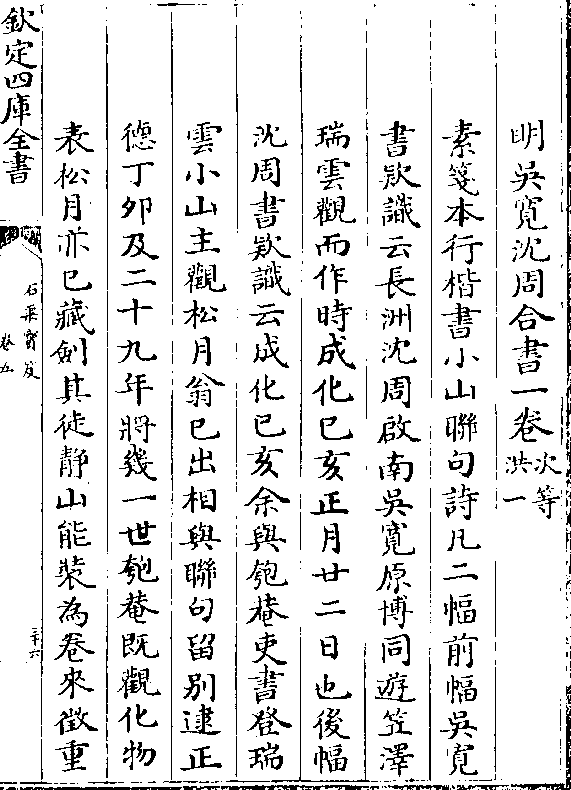 明吳寛沈周合書一卷次等洪一
素箋本行楷書小山聯句詩凡二幅前幅吳寛
書欵識云長洲沈周啟南吳寛原博同遊笠澤
瑞雲觀而作時成化巳亥正月廿二日也後幅
沈周書欵識云成化巳亥余與匏菴吏書登瑞
雲小山主觀松月翁巳出相與聯句留别逮正
德丁夘及二十九年將幾一世匏菴既觀化物
表松月亦巳藏劍其徒静山能裝為卷來徵重
欽定四庫全書
石渠寳笈
卷五